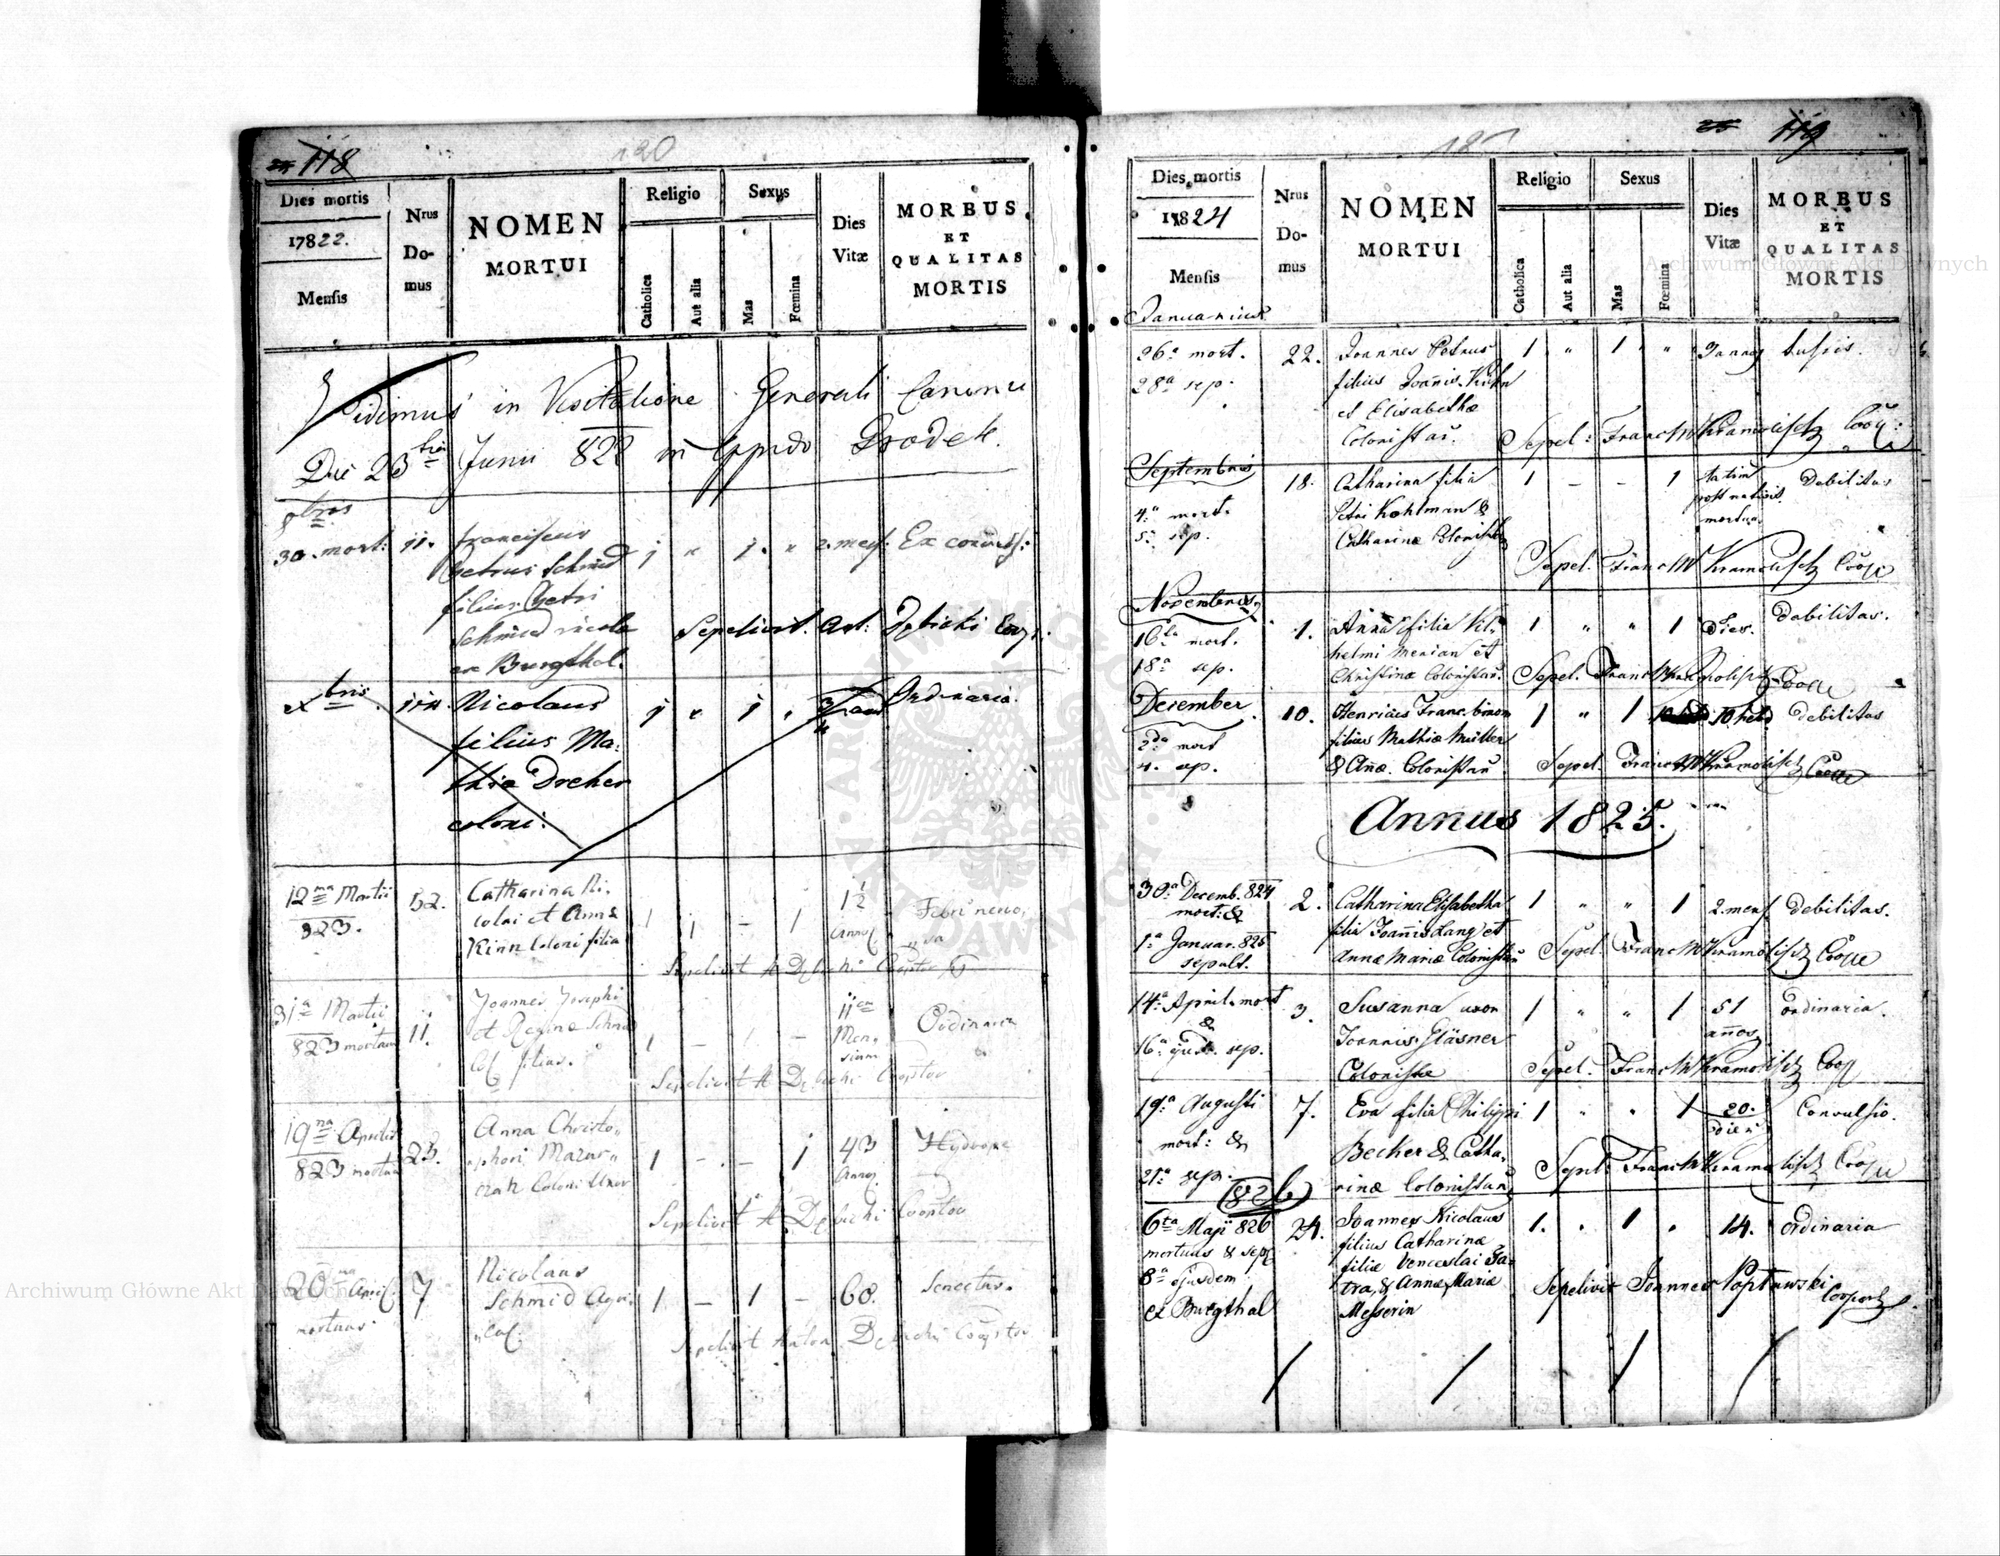 118
120
Dies mortis
17822.
Mensis
Nrus
Do-
mus
NOMEN
MORTUI
Religio
Catholica
Aut alia
Sexus
Mas
Fœmina
Dies
Vitæ
MORBUS
ET
QUALITAS
MORTIS
Vidimus in Visitatione Generali Canonic
Die 23 Junii 822 in Oppido Grodek.
30. mort: 11. Franciscus 1 " 1. " 2. mens:
Petrus Schmid
filius Petri
Schmid
ex Burgthal.
Sepelivit Ant: Dębicki Coop:
Nicolaus 1 " 1 Ordinaria.
filius Ma-
thiæ Docher
coloni:
12ma Martii
823.
52.
Catharina Ni-
colai et Annæ
Kinn Coloni filia
1 - 1
1½
Annor
Sepelivit A Dębicki Cooptor
31a Martii
823 mortuus
11.
Joannes Josephi
et Reginæ Schmid
Col. filius.
1 - 1 -
11
Men-
sium
Ordinaria
Sepelivit A Dębicki Cooptor
19na Aprilis
823 mortua
23.
Anna Christo-
phori Mazur-
czak Coloni Uxor
1 - - 1
43
Annor.
Hydrope
Sepelivit A Dębicki Cooptor
20ma April.
mortuus.
7
Nicolaus
Schmid Agri-
col.
1 - 1 -
60.
Senectus.
Sepelivit Anton Dębicki Cooptor
119
Dies mortis
17824
Mensis
Januarius
Nrus
Do-
mus
NOMEN
MORTUI
Religio
Catholica
Aut alia
Sexus
Mas
Fœmina
Dies
Vitæ
MORBUS
ET
QUALITAS
MORTIS
26a mort.
28a sep.
22.
Joannes Petrus
filius Joannis Kühn
et Elisabethæ
Colonistar.
1 " 1 "
3 annos
tussis.
Sepel: Franc M Kramolisch Coop:
Septembris
4a mort.
5. sep.
18.
Catharina filia
Petri Kohlman &
Catharinæ Colonistar
1 - - 1
statim
post nativit.
mortua.
Debilitas
Sepel. Franc M Kramolisch Coop
Novembris
16ta mort.
18a sep.
1.
Anna filia
helmi Merian et
Christinæ Colonistar.
1 " " 1
dies.
debilitas.
Sepel. Franc M Kramolisch Coop
December
2da mort
4. sep.
10.
Henricus Franc.
filius Mathiæ Müller
& Annæ. Colonistar
1 " 1
10 hebd
debilitas
Sepel. Franc M Kramolisch Coop
Annus 1825.
30a Decemb. 824
mort: &
1a Januar. 825
sepult.
2.
Catharina Elisabetha
filia Joannis Lang et
Annæ Mariæ Colonistar
1 " " 1
2. mens
debilitas.
Sepel. Franc M Kramolisch Coop
14a April. mort
&
16a ejusd. sep.
3.
Susanna uxor
Joannis Gläsner
Colonistæ
1 " " 1
51
annos
ordinaria.
Sepel. Franc M Kramolisch Coop
19a Augusti
mort: &
21a sep.
7.
Eva filia Philippi
Becker & Catha-
rinæ Colonistar
1 " " 1
20.
dier
Convulsio.
Sepel: Franc M Kramolisch Coop
1826
6ta Maji 826
mortuus & sep
8a ejusdem
ex Burgthal
24.
Joannes Nicolaus
filius Catharinæ
filiæ Venceslai Ja-
tra, & Annæ Mariæ
Messerin
1. . 1 .
14.
ordinaria
Sepelivit Joannes Poptawski Cooport.
Archiwum Główne Akt Dawnych
Archiwum Główne Akt Dawnych
ARCHIWUM GŁÓWNE AKT DAWNYCH